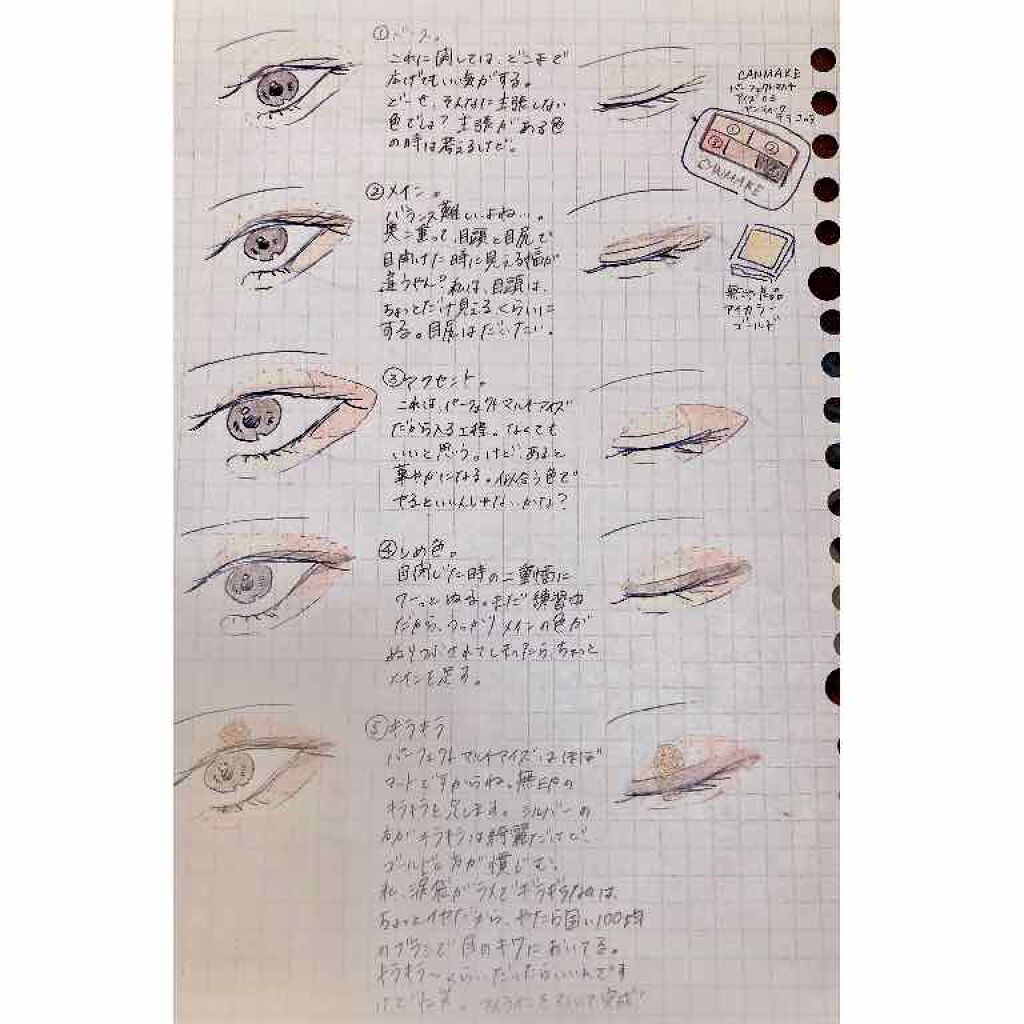 ①ベース。
これに関しては、どこまで
広げてもいい気がする。
どーせ、そんなに主張しない
色でしょ？主張がある色
の時は考えるけど。
CANMAKE
パーフェクトマルチ
アイズ 03
アンティーク
テラコッタ
①
②
③
CANMAKE
②メイン。
バランス難しいよね…。
奥二重って、目頭と目尻で
目開けた時に見える幅が
違うやん？私は、目頭は、
ちょっとだけ見えるくらいに
する。目尻はだいたい。
無印良品
アイカラー
ゴールド
③アクセント。
これは、パーフェクトマルチアイズ
だから入る工程。なくても
いいと思う。けど、あると
華やかになる。似合う色で
やるといいんじゃないかな？
④しめ色。
目閉じた時の二重幅に
スーっとぬる。まだ練習中
だから、うっかりメインの色が
ぬりつぶされてしまったら、ちょっと
メインを足す。
⑤キラキラ
パーフェクトマルチアイズはほぼ
マットですからね。無印の
キラキラを足します。シルバーの
方がキラキラは綺麗だけど、
ゴールドの方が馴じむ。
私、涙袋がラメでギラギラなのは、
ちょっとイヤだから、やたら固い100均
のブラシで目のキワにおいてる。
キラキラ〜くらいだったらいいんです
けどねえ。アイラインをひいて完成!